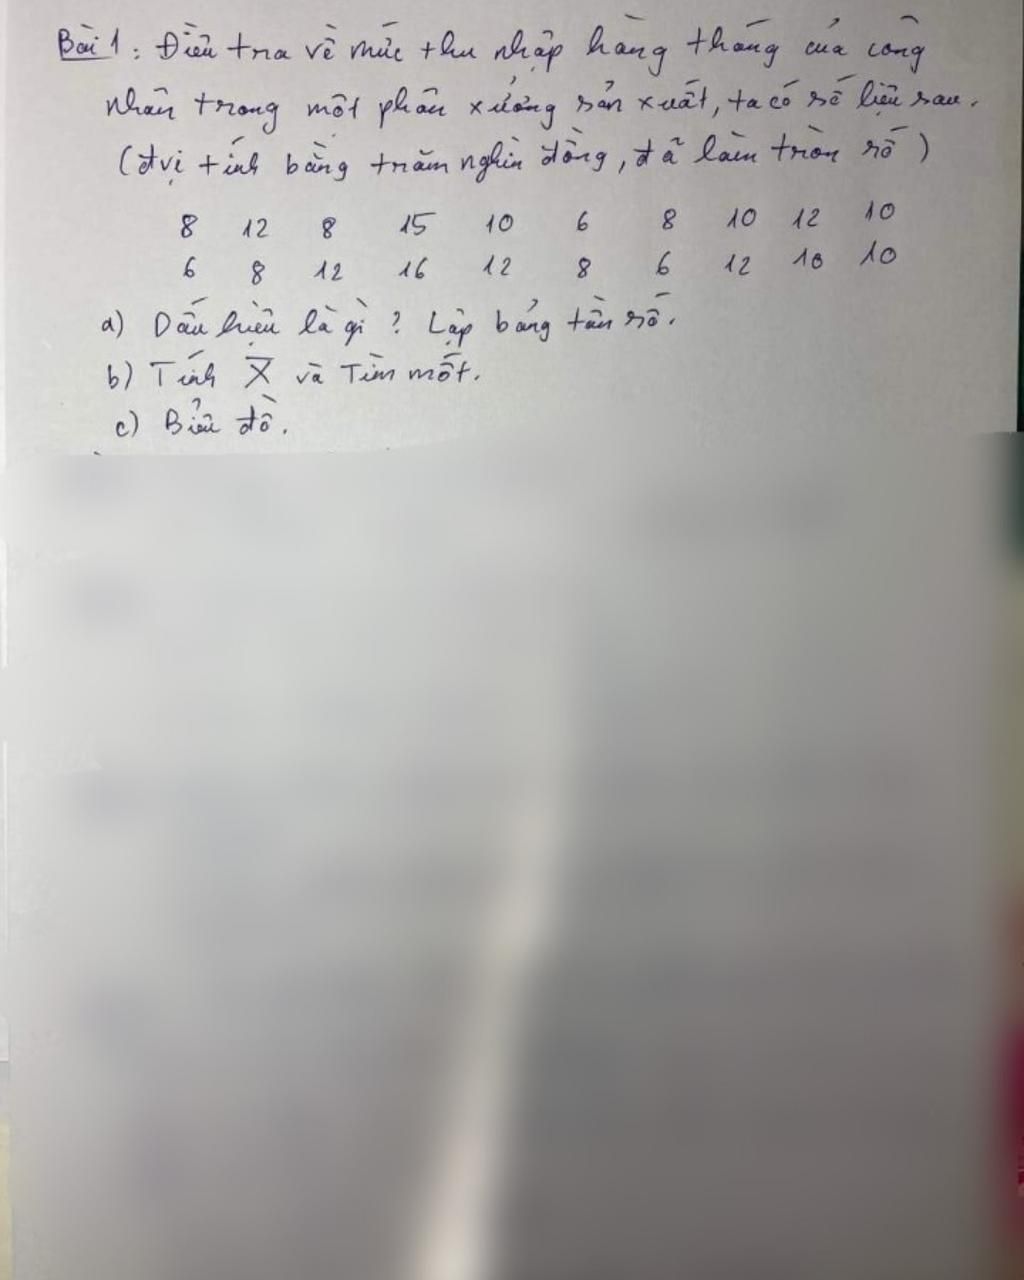 Bài 1: Điều tra về mức thu nhập hàng tháng của công
nhân trong một phân xưởng sản xuất, ta có số liệu sau.
(đvị tính bằng trăm nghìn đồng, đã làm tròn số)
8 12 8 15 10 6 8 10 12 10
6 8 12 16 12 8 6 12 10 10
a) Dấu hiệu là gì? Lập bảng tần số.
b) Tính X̄ và Tìm mốt.
c) Biểu đồ.